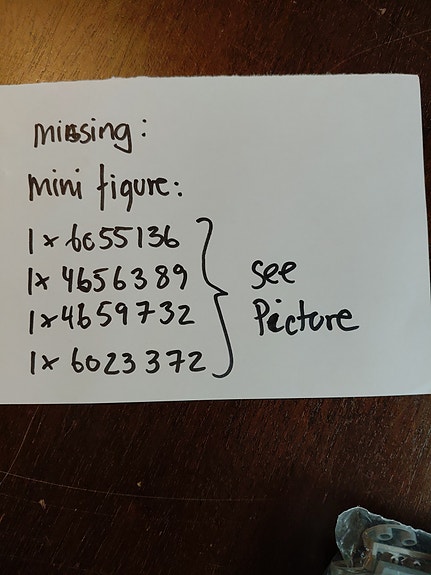 missing:
mini figure:
1x 6055136
1x 4656389
1x4659732
1x 6023372
see
Picture